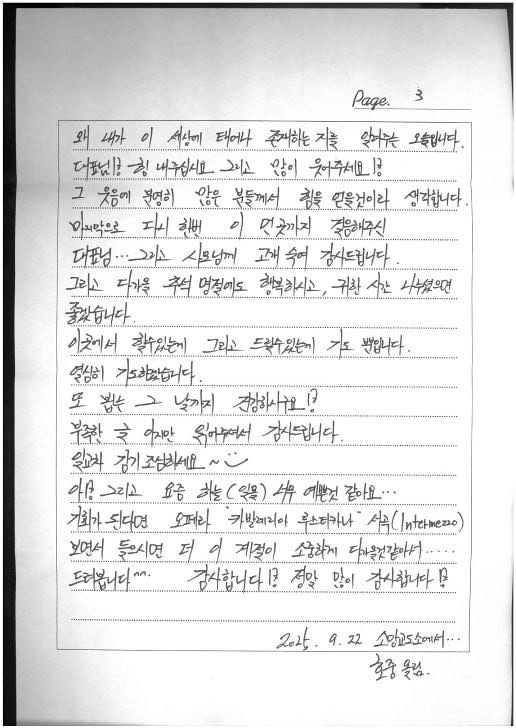 Page. 3
왜 내가 이 세상에 태어나 존재하는지를 알려주는 오늘입니다.
대표님!? 힘 내주십시요 그리고 많이 웃어주세요!?
그 웃음에 분명히 많은 분들께서 힘을 얻을것이라 생각합니다.
마지막으로 다시 한번 이 먼곳까지 걸음해주신
대표님... 그리고 사모님께 고개 숙여 감사드립니다.
그리고 다가올 추석 명절에도 행복하시고, 귀한 시간 나누셨으면
좋겠습니다.
이곳에서 할수있는게 그리고 드릴수있는게 기도 뿐입니다.
열심히 기도하겠습니다.
또 뵙는 그 날까지 건강하시구요!?
부족한 글 이지만 읽어주셔서 감사드립니다.
일교차 감기 조심하세요~
아!? 그리고 요즘 하늘(일몰) 너무 예쁜것 같아요...
기회가 된다면 오페라 "카발레리아 루스티카나" 서곡(Intermezzo)
보면서 들으시면 더 이 계절이 소중하게 다가올것같아서.....
드려봅니다^^ 감사합니다!? 정말 많이 감사합니다!?
2025. 9. 22 소망교도소에서...
호중 올림.